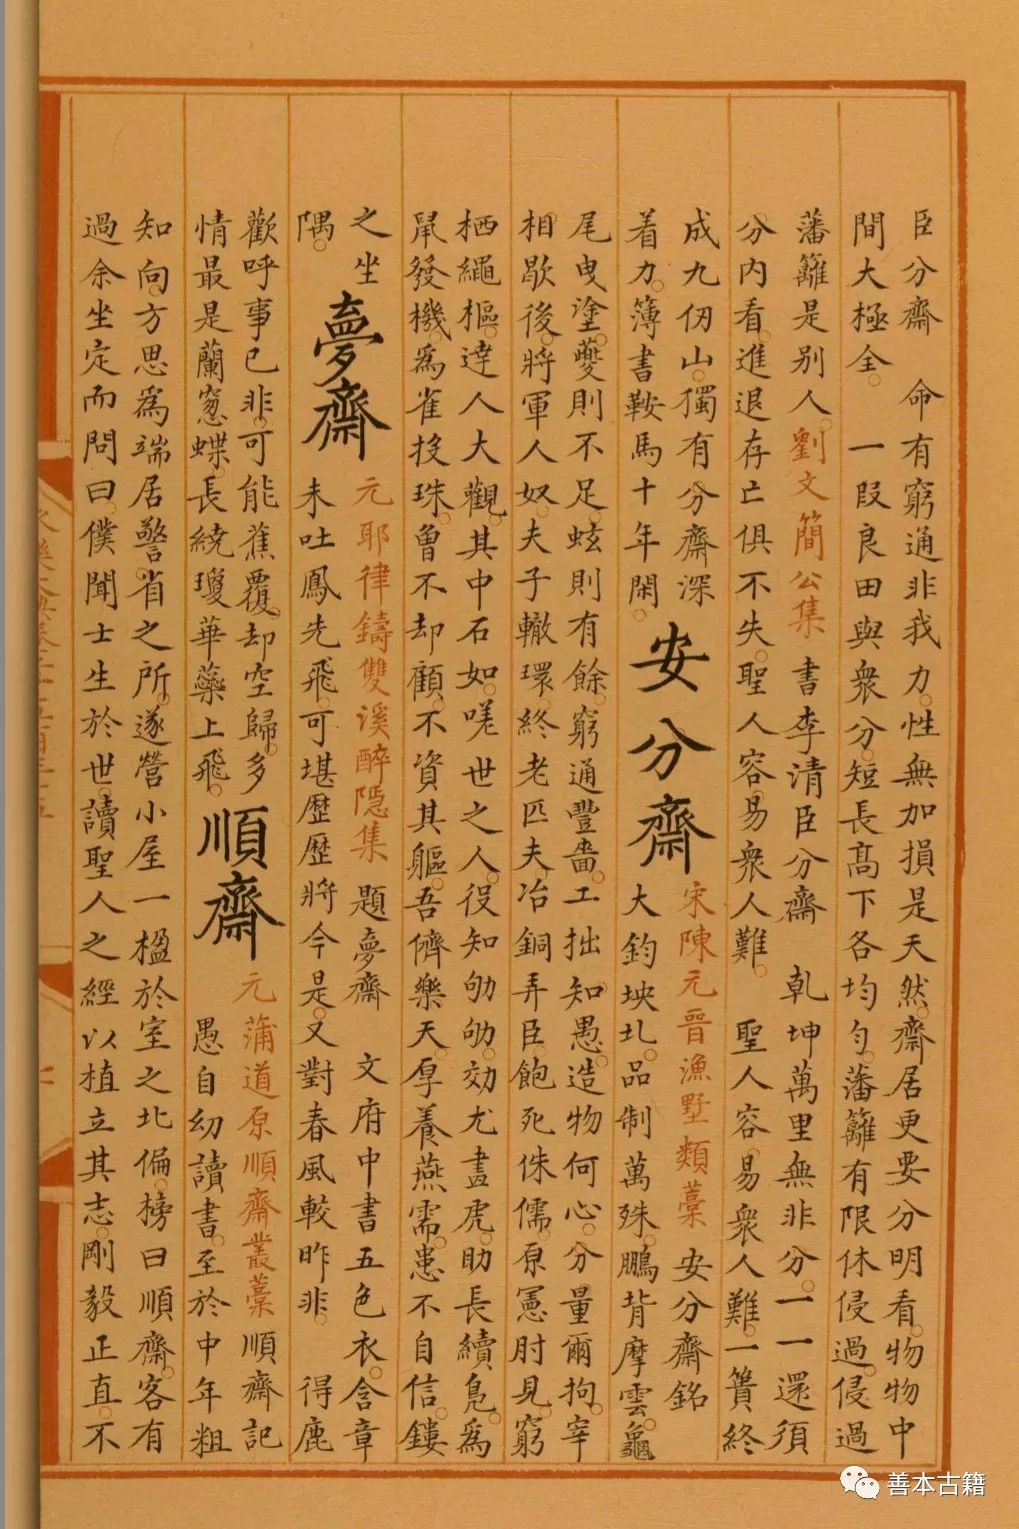 臣分齋　命有窮通非我力性無加損是天然齋居更要分明看物物中
間大極全　一段良田與衆分短長高下各均勻藩籬有限休侵過侵過
藩籬是别人劉文簡公集書李清臣分齋　乹坤萬里無非分一一還須
分内看進退存亡俱不失聖人容易衆人難　聖人容易衆人難一簣終
成九仞山獨有分齋深
着力簿書鞍馬十年閑
安分齋
宋陳元晉漁墅類藁　安分齋銘
大鈞坱圠品制萬殊鵬背摩雲龜
尾曳塗夔則不足蚿則有餘窮通豐嗇工拙知愚造物何心分量爾拘宰
相歇後將軍人奴夫子轍環終老匹夫冶銅弄臣飽死侏儒原憲肘見窮
栖繩樞逹人大觀其中石如嗟世之人役知劬劬効尤畫虎助長續鳬為
鼠發機為雀投珠曾不却顧不資其軀吾儕樂天厚養燕需患不自信鏤
之坐
隅
夢齋
元耶律鑄雙溪醉隠集　題夢齋　文府中書五色衣含章
未吐鳳先飛可堪歷歷將今是又對春風較昨非　得鹿
歡呼事已非可能蕉覆却空歸多
情最是蘭窓蝶長繞瓊華蘂上飛
順齋
元蒲道原順齋叢藁順齋記
愚自幼讀書至於中年粗
知向方思為端居警省之所遂營小屋一楹於室之北偏榜曰順齋客有
過余坐定而問曰僕聞士生於世讀聖人之經以植立其志剛毅正直不
善本古籍